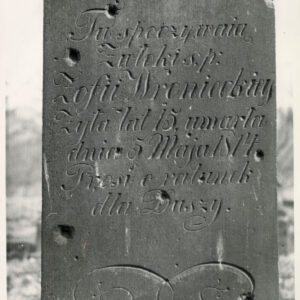 Tu spoczywaią
Zwłoki s.p:
Zofii Wroniackiey
Żyła lat 15. umarła
dnia 5 Maja 1814
Prosi o ratunek
dla Duszy.